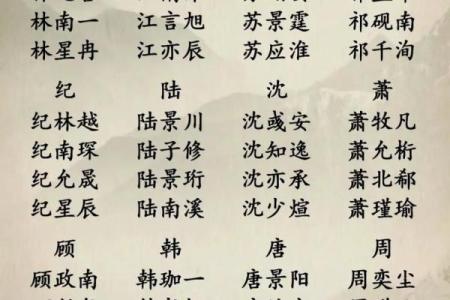 林南一 江言旭 苏景霆 祁砚南
林星冉 江亦辰 苏应淮 祁千洵
纪 陆 沈 萧
纪林越 陆景川 沈彧安 萧牧凡
纪南琛 陆子修 沈知逸 萧允桁
纪允晟 陆景珩 沈亦承 萧北郗
纪星辰 陆南溪 沈少煊 萧瑾瑜
顾 韩 唐 周
顾政南 韩珈一 唐景阳 周奕尘